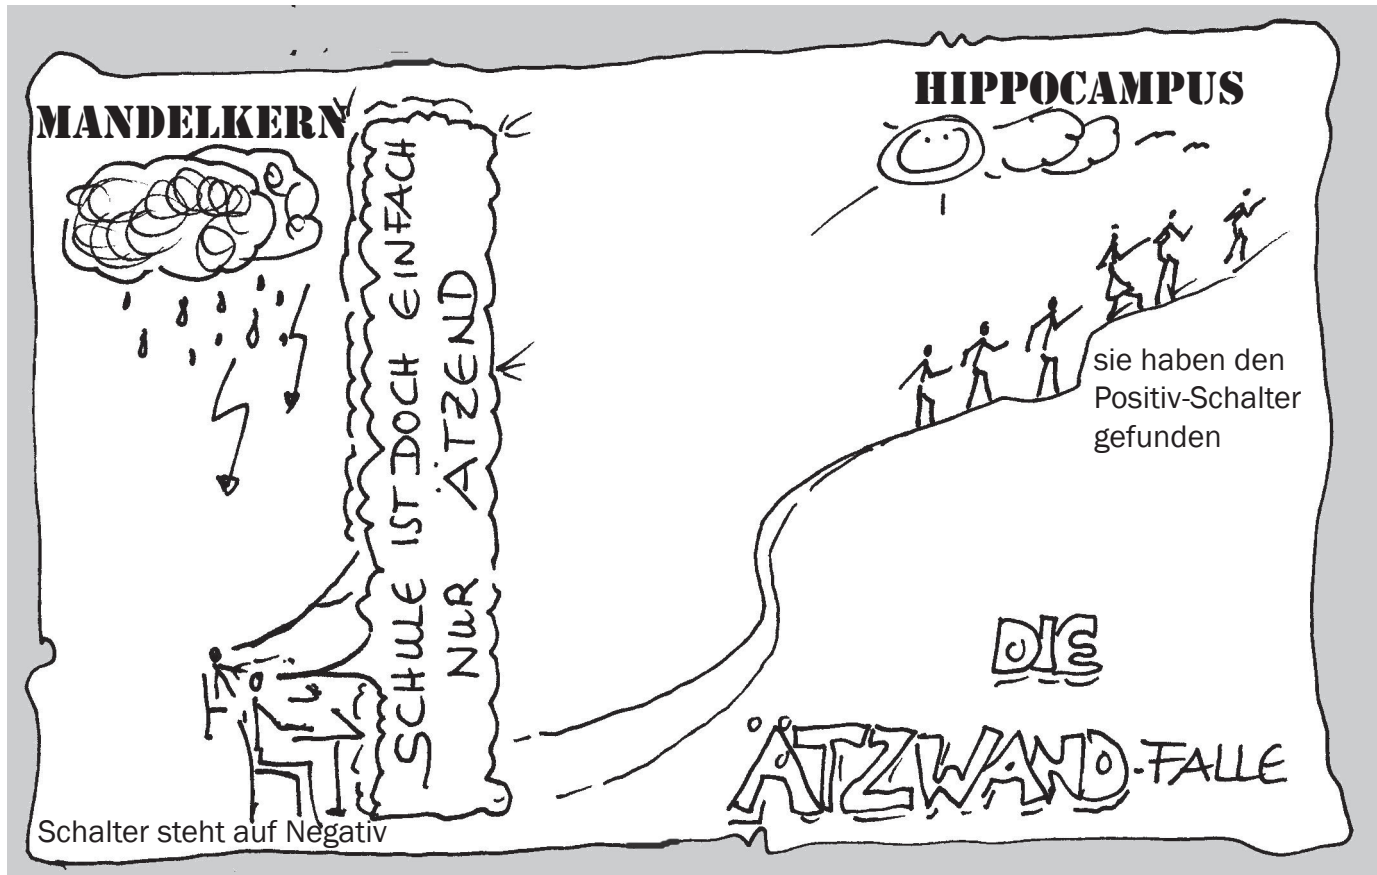 MANDELKERN
HIPPOCAMPUS
SCHULE IST DOCH EINFACH
NUR ÄTZEND
sie haben den
Positiv-Schalter
gefunden
DIE
ÄTZWAND-FALLE
Schalter steht auf Negativ